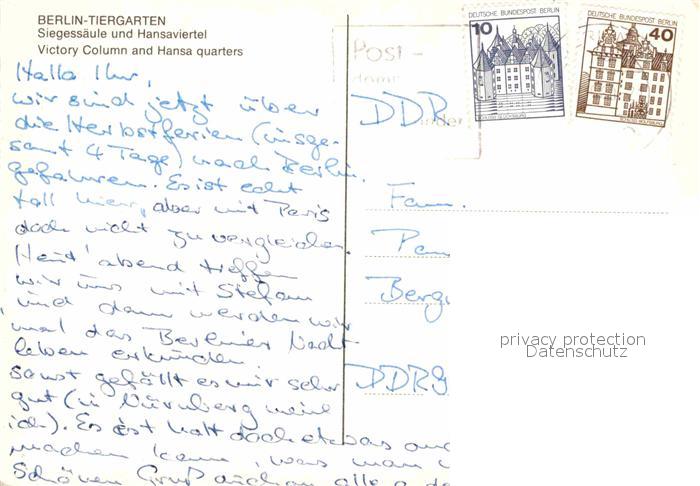 BERLIN-TIERGARTEN
Siegessäule und Hansaviertel
Victory Column and Hansa quarters
DEUTSCHE BUNDESPOST BERLIN
10
SCHLOSS GLÜCKSBURG
DEUTSCHE BUNDESPOST BERLIN
40
SCHLOSS WOLFSBURG
Post-
Hallo Ihr,
wir sind jetzt über
die Herbstferien (insge-
samt 4 Tage) nach Berlin
gefahren. Es ist echt
toll hier, aber mit Paris
doch nicht zu vergleichen.
Heut' abend treffen
wir uns mit Stefan
und dann werden wir
mal das Berliner Nacht
leben erkunden
sonst gefällt es mir sehr
gut (in Nürnberg meine
ich). Es ist halt doch etwas
machen kann, was man
Schönen Gruß auch an alle
DDR
Fam.
Berg
DDR 9
privacy protection
Datenschutz